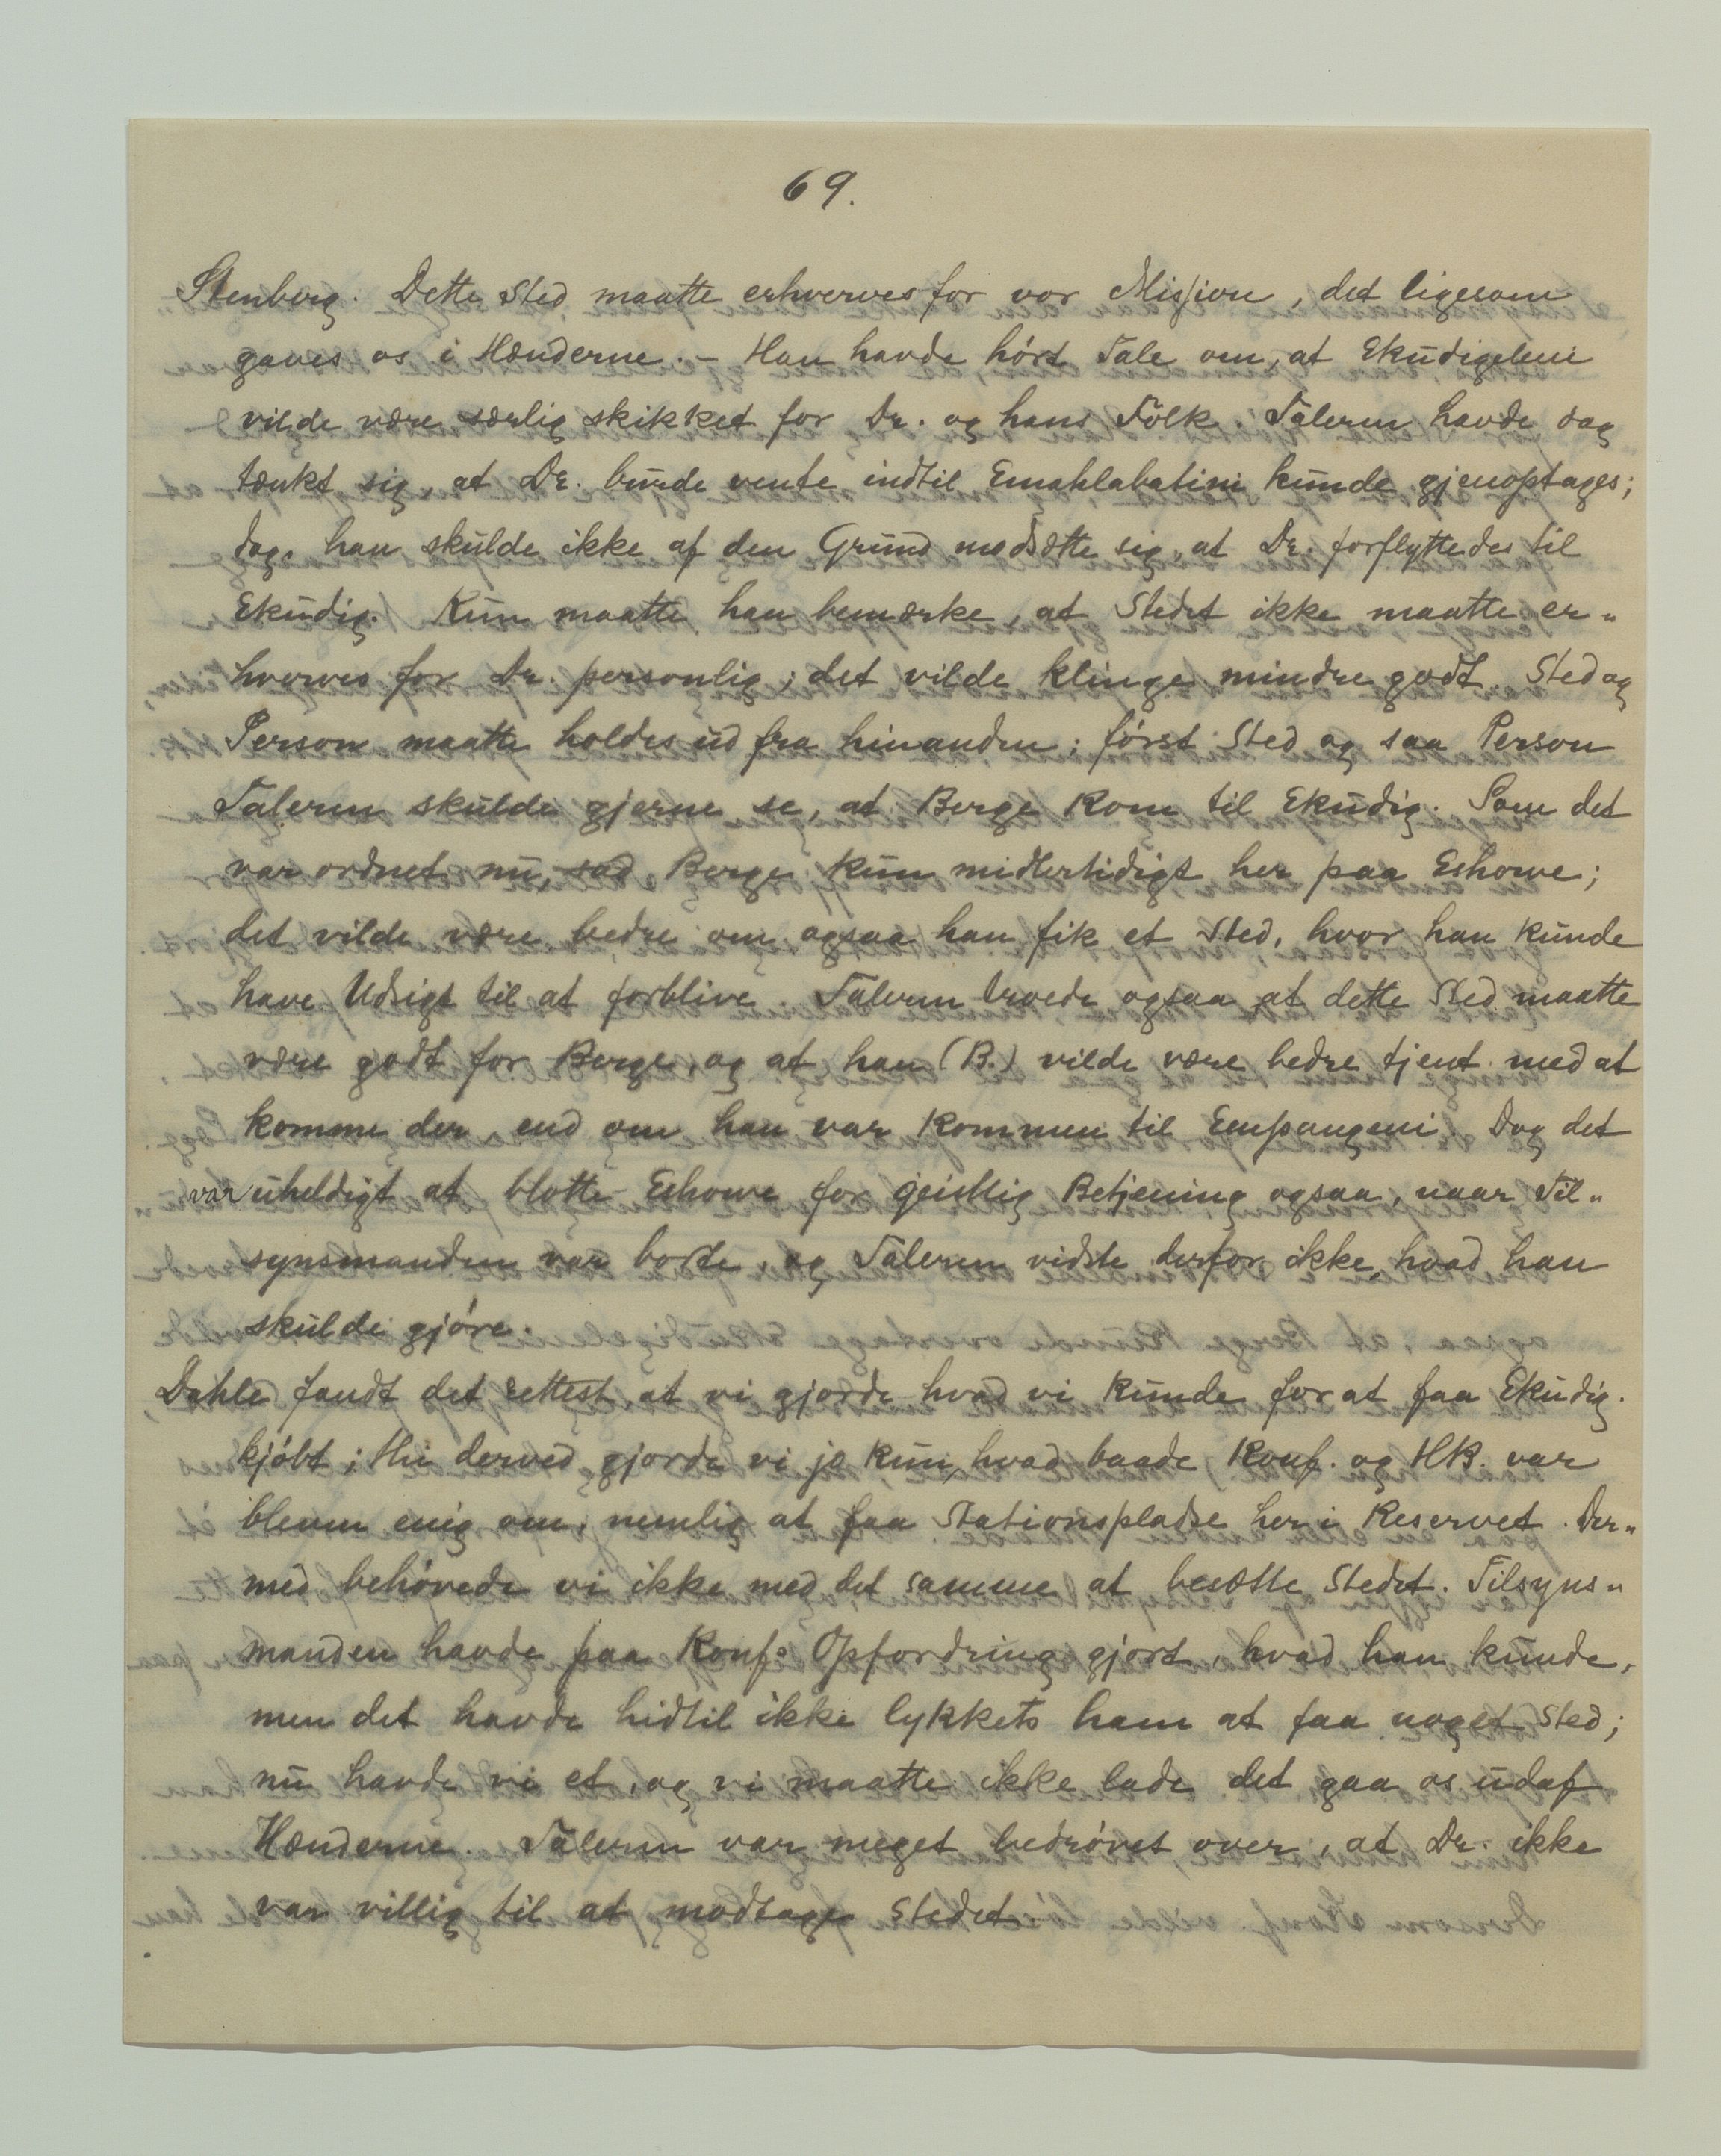 69.
Stenberg. Dette Sted maatte erhverves for vor Mission, det ligesom
gaves os i Hænderne. – Han havde hørt Tale om, at Ekudigeleni
vilde være særlig skikket for Dr. og hans Folk. Taleren havde dog
tænkt sig, at Dr. burde vente indtil Emahlabatini kunde gjenoptages;
dog, han skulde ikke af den Grund modsætte sig, at Dr. forflyttedes til
Ekudig. Kun maatte han bemærke, at Stedet ikke maatte er„
hverves for Dr. personlig; det vilde klinge mindre godt. Sted og
Person maatte holdes ud fra hinanden; først Sted og saa Person
Taleren skulde gjerne se, at Berge kom til Ekudig. Som det
var ordnet nu, sad Berge kun midlertidigt her paa Eshowe;
det vilde være bedre om ogsaa han fik et Sted, hvor han kunde
have Udsigt til at forblive. Taleren troede ogsaa at dette Sted maatte
være godt for Berge, og at han (B.) vilde være bedre tjent med at
komme der, end om han var kommen til Empangeni. Dog det
var uheldigt at blotte Eshowe for geistlig Betjening ogsaa, naar Til„
synsmanden var borte, og Taleren vidste derfor ikke, hvad han
skulde gjøre.
Dahle fandt det rettest at vi gjorde hvad vi kunde for at faa Ekudig.
kjøbt; thi derved gjorde vi jo kun, hvad baade Konf. og HB. var
bleven enig om, nemlig at faa Stationspladse her i Reservet. Der„
med behøvede vi ikke med det samme at besætte Stedet. Tilsyns„
manden havde paa Konfs Opfordring gjort, hvad han kunde,
men det havde hidtil ikke lykkets ham at faa noget Sted;
nu havde vi et, og vi maatte ikke lade det gaa os udaf
Hænderne. Taleren var meget bedrøvet over, at Dr. ikke
var villig til at modtage Stedet.